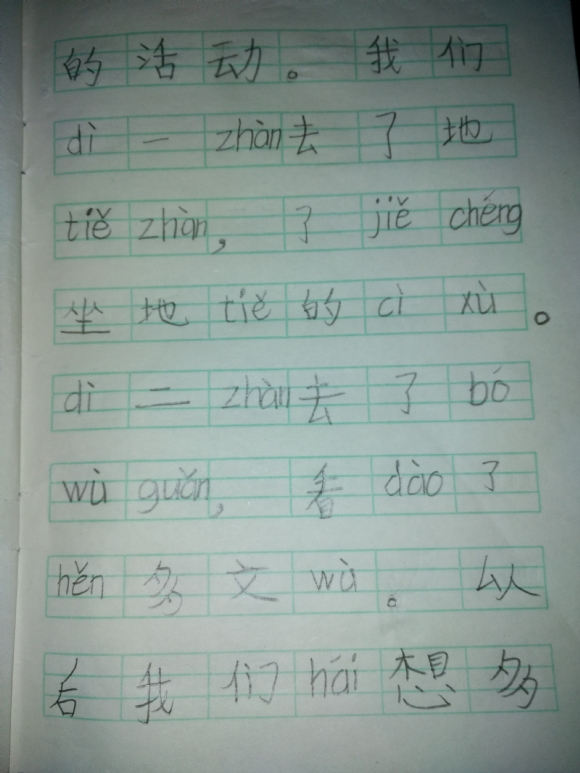 的活动。我们
dì一zhàn去了地
tiě zhàn，了jiě chéng
坐地tiě的cì xù。
dì二zhàn去了bó
wù guǎn，看dào了
hěn多文wù。以
后我们hái想多